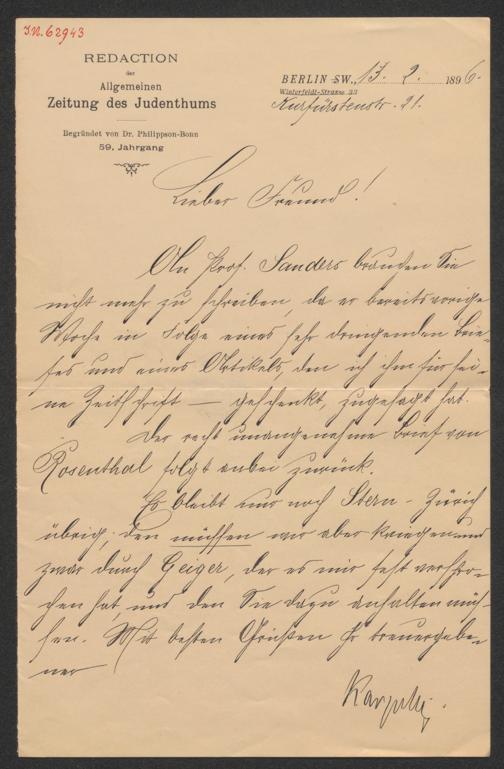 I.N. 62943
REDACTION
der
Allgemeinen
Zeitung des Judenthums
Begründet von Dr. Philippson-Bonn
59. Jahrgang
BERLIN SW., 13. 2. 1896.
Winterfeldt-Strasse 33
Kurfürstenstr. 21.
Lieber Freund!
An Prof. Sanders brauchen Sie
nicht mehr zu schreiben, da er bereits vorige
Woche in Folge eines sehr dringenden Brie-
fes und eines Artikels, den ich ihm für sei-
ne Zeitschrift — geschenkt, zugesagt hat.
Der recht unangenehme Brief von
Rosenthal folgt anbei zurück.
Es bleibt nur noch Stern - Zürich
übrig; den müssen wir aber kriegen und
zwar durch Geiger, der es mir fest verspro-
chen hat und den Sie dazu anhalten müs-
sen. Mit besten Grüßen Ihr treuergebe-
ner
Karpeles.